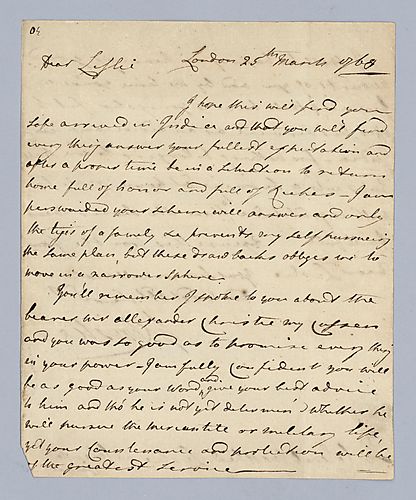 04
Dear Leslie London 25th March 1768
I hope this will find you
safe arrived in India and that you will find
every thing answer your fullest expectation and
after a proper time be in a situation to return
home full of honor and full of Riches - I am
perswaided your scheme will answer and only
the tyes of a family &c prevents my self pursueing
the same plan but these draw backs obliges me to
move in a narrower sphere
You'll remember I spoke to you about the
bearer Mr Alexander Christie my Cussen
and you was so good as to promise every thing
in your power - I am fully confident you will
be as good as your word and give your best advice
to him and tho' he is not yet determin'd whether he
will pursue the mercantile or military life,
yet your Countenance and protection will be
of the greatest service